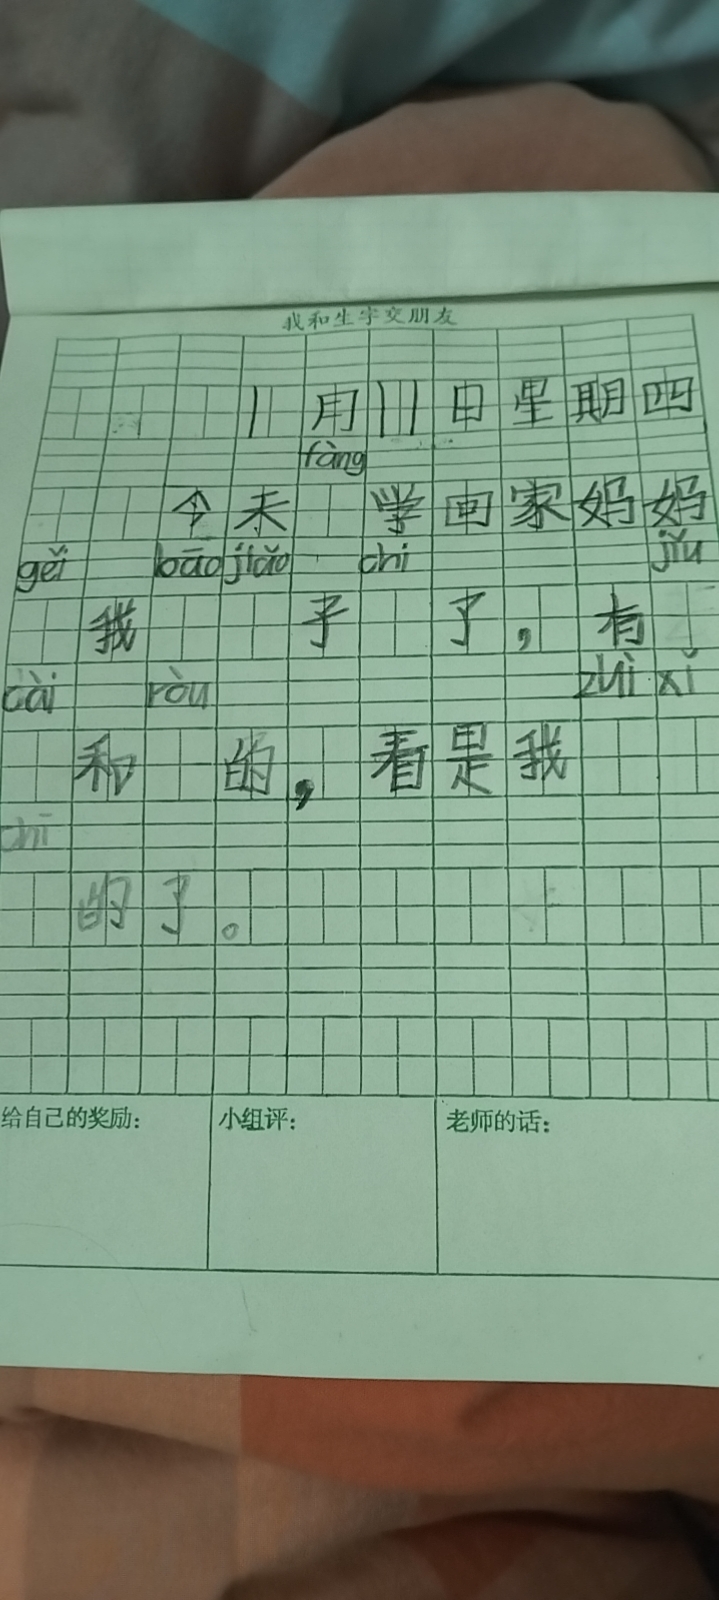 我和生字交朋友
1用11日星期四
fàng
今天 学回家妈妈
gěi bāo jiǎo chi jǐu
我 子 了，有
cài ròu zhǜ xǐ
和 的，看是我
chī
的了。
给自己的奖励： 小组评： 老师的话：